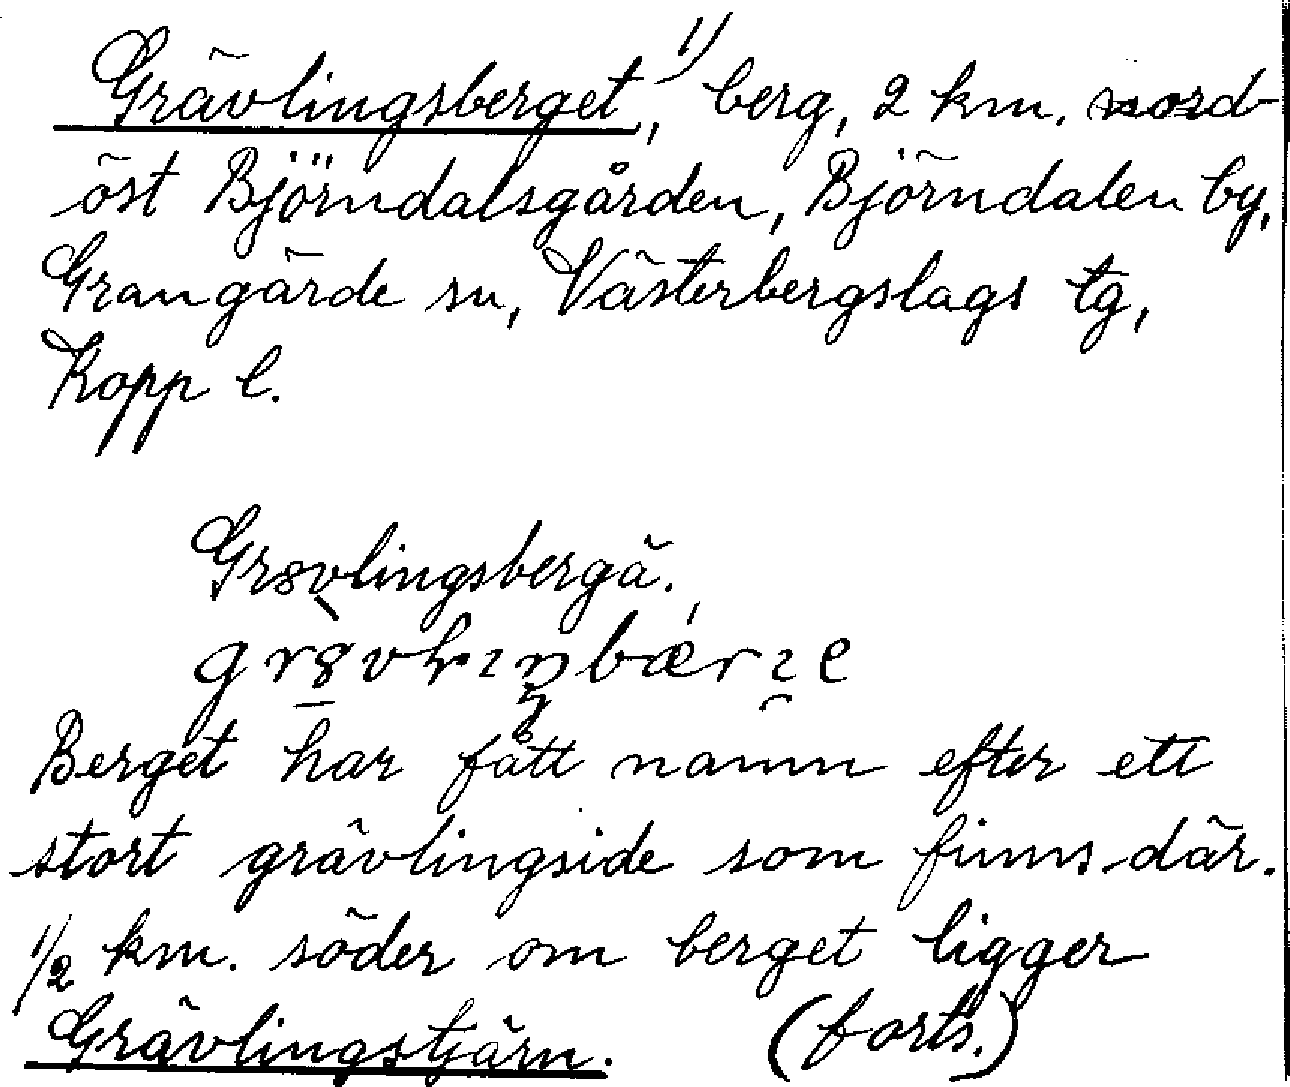 Grävlingsberget,¹⁾ berg, 2 km. nord
öst Björndalsgården, Björndalen by,
Grangärde sn, Västerbergslags tg,
Kopp l.
Grövlingsbergä.
Berget har fått namn efter ett
stort grävlingside som finns där.
1/2 km. söder om berget ligger
Grävlingstjärn. (forts.)